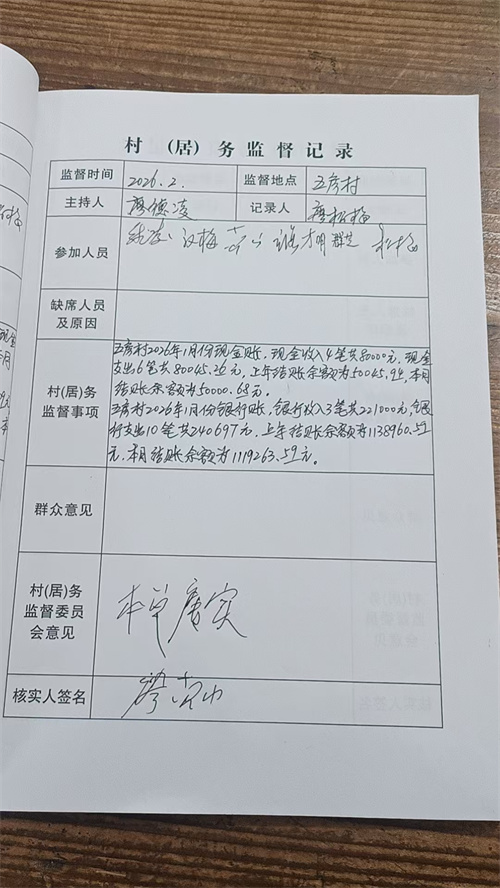 村 (居) 务监督记录
监督时间 2026.2. 监督地点 五房村
主持人 廖德凌 记录人 廖松梅
参加人员
缺席人员
及原因
村(居)务
监督事项
五房村2026年1月份现金账,现金收入4笔共80000元,现金
支出6笔共80045.26元,上年结账余额为50045.94,本月
结账余额为50000.68元。
五房村2026年1月份银行账,银行收入3笔共221000元,银
行支出10笔共240697元,上年结账余额为1138960.59
元,本月结账余额为1119263.59元。
群众意见
村(居)务
监督委员
会意见
核实人签名